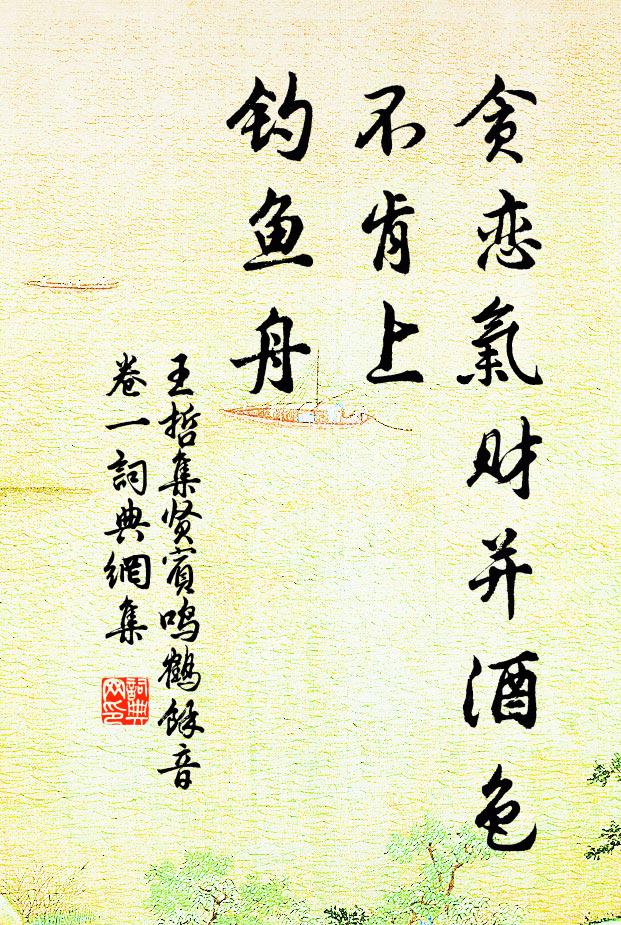 贪恋氣财并酒色
不肯上
钓鱼舟
王哲集贤賓鸣鶴餘音
卷一詞典網集
詞典
网印